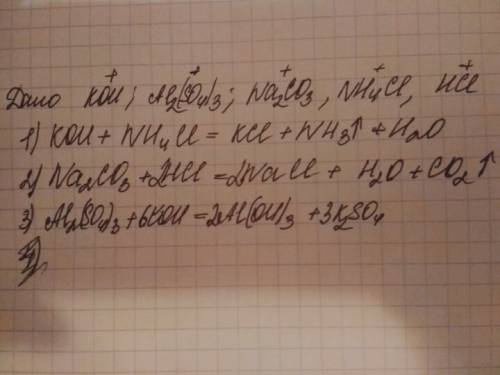 Дано KOH; Al2(SO4)3; Na2CO3, NH4Cl, HCl
1) KOH + NH4Cl = KCl + NH3↑ + H2O
2) Na2CO3 + 2HCl = 2NaCl + H2O + CO2↑
3) Al2(SO4)3 + 6KOH = 2Al(OH)3 + 3K2SO4